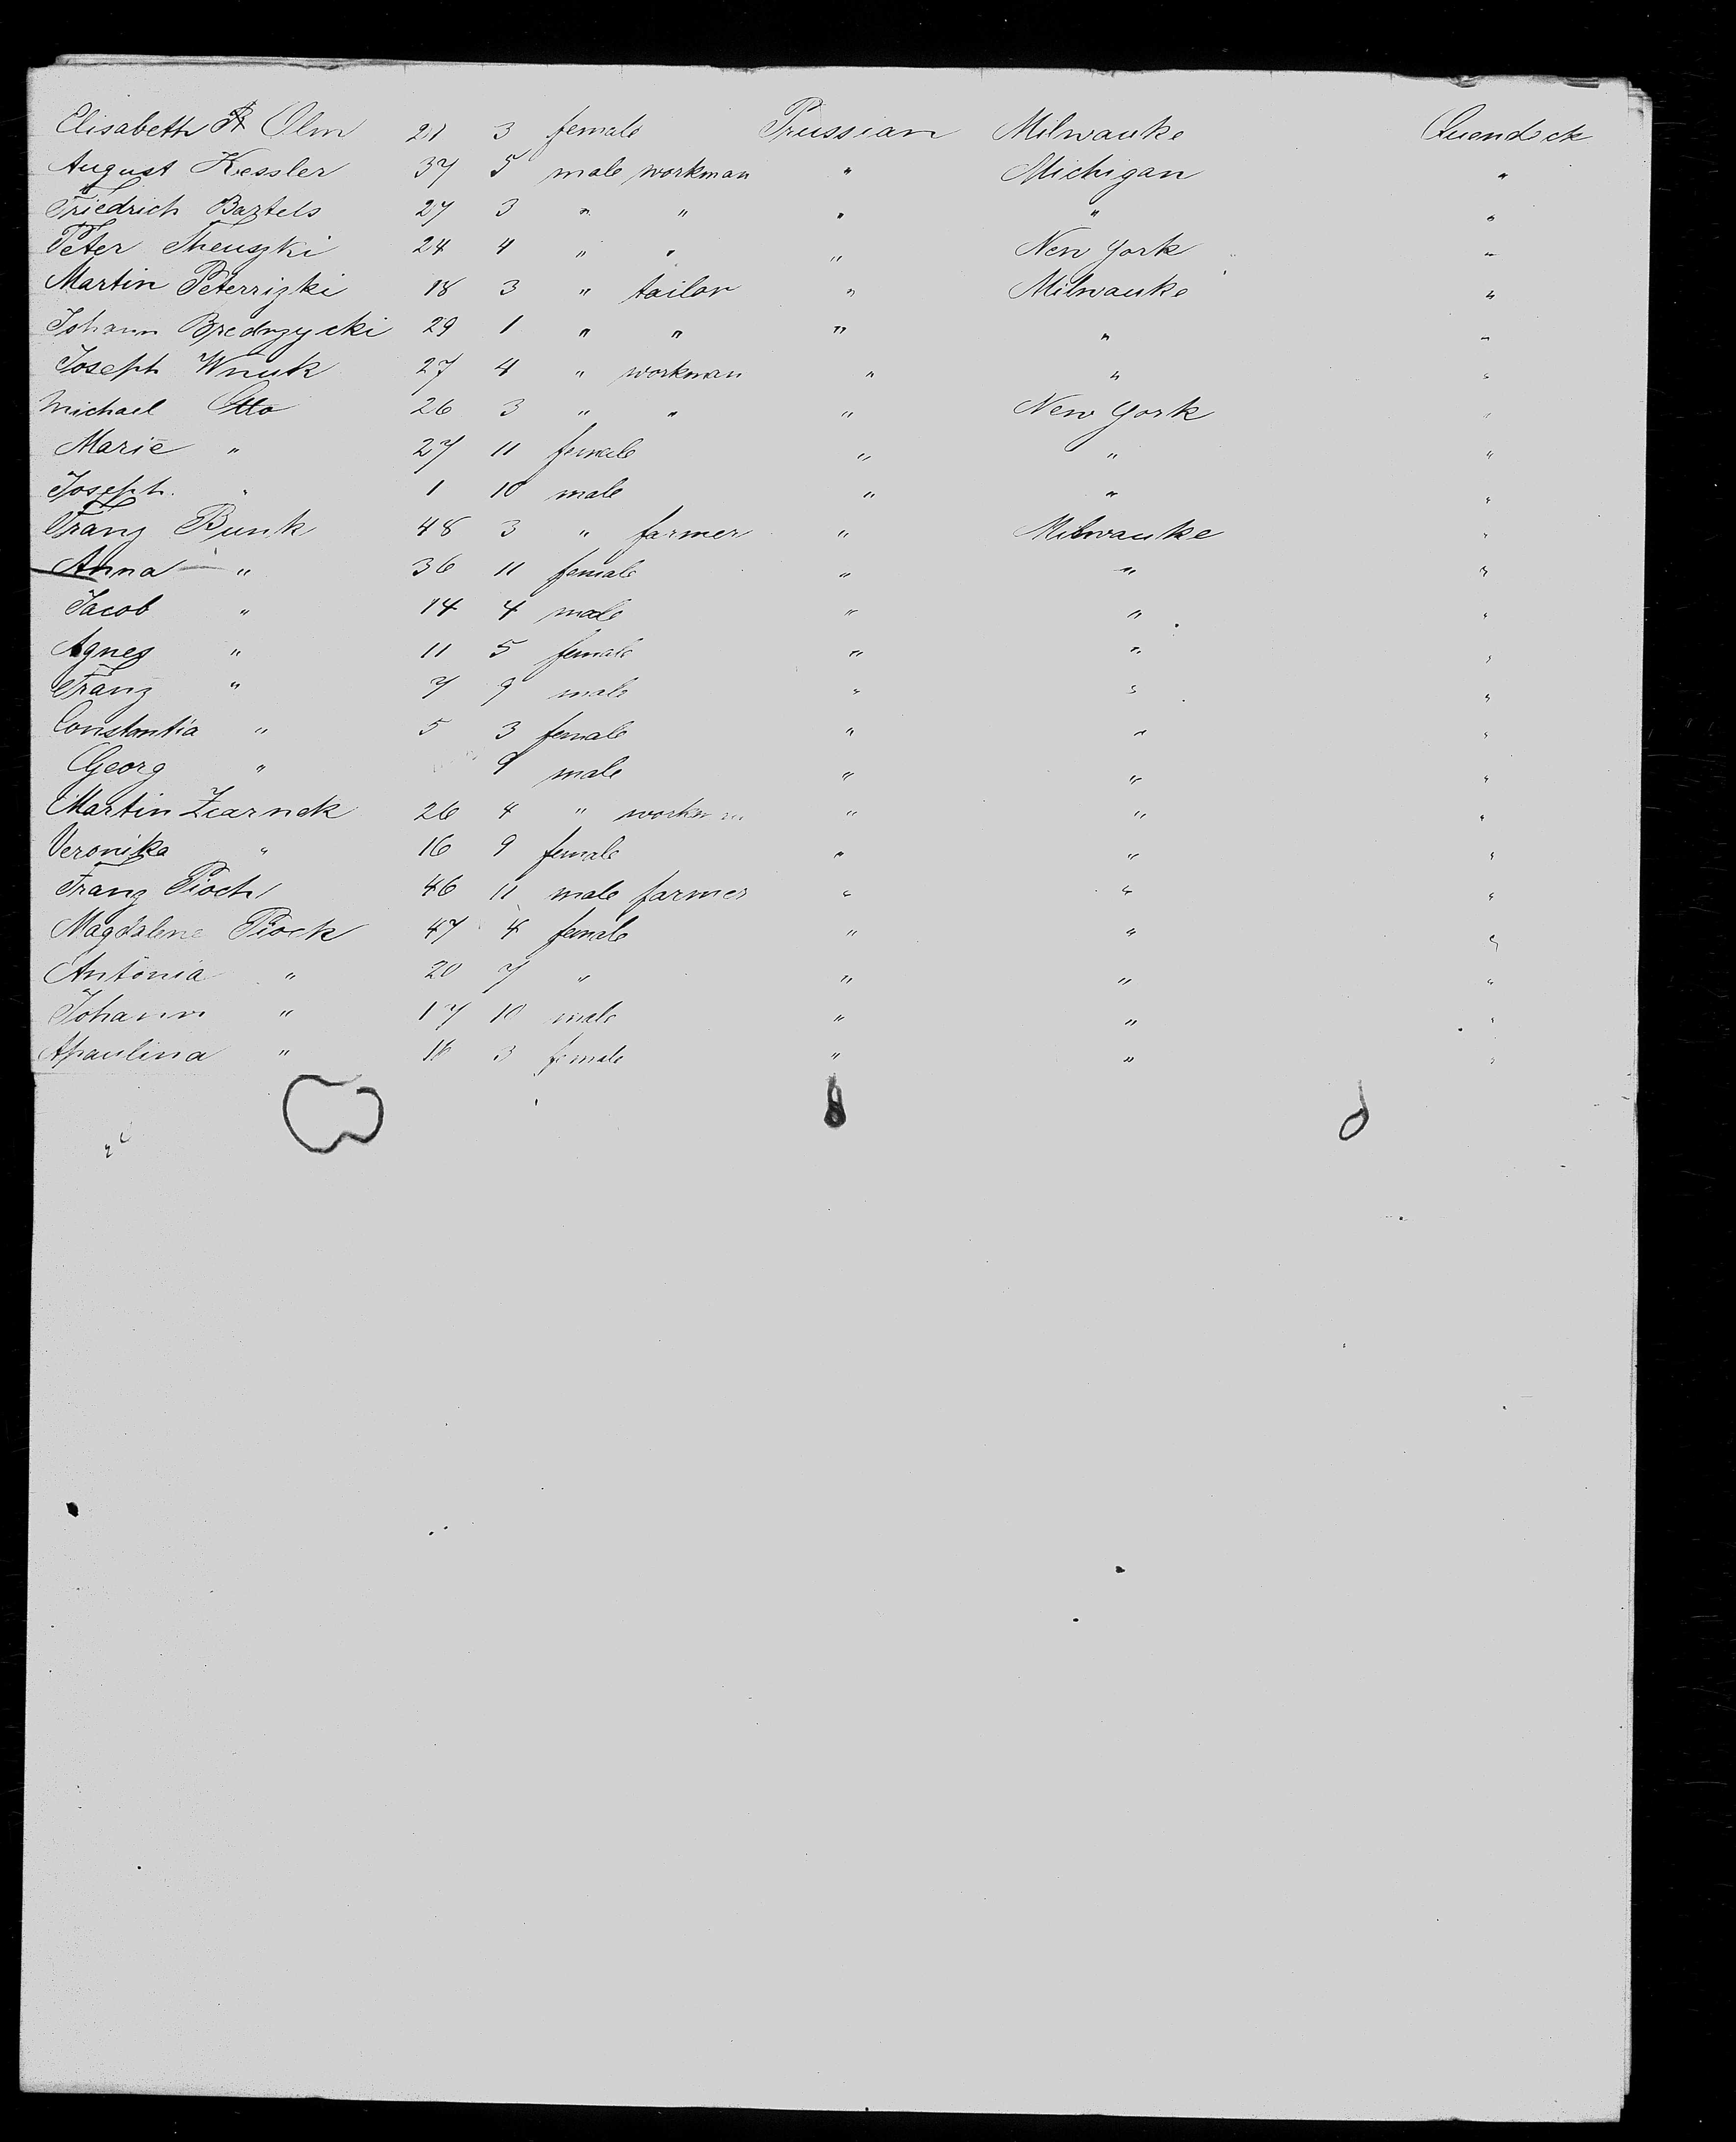 Elisabeth Olm 21 3 female Prussian Milwauke Quendeck
August Kessler 37 5 male workman " Michigan "
Friedrich Bartels 27 3 " " " " "
Peter Theuszki 24 4 " " " New York "
Martin Peterrizki 18 3 " tailor " Milwauke "
Johann Bredrzycki 29 1 " " " " "
Joseph Wnuk 27 4 " workman " " "
Michael Otto 26 3 " " " New York "
Marie " 27 11 female " " "
Joseph " 1 10 male " " "
Franz Bunk 48 3 " farmer " Milwauke "
Anna " 36 11 female " " "
Jacob " 14 4 male " " "
Agnes " 11 5 female " " "
Franz " 7 9 male " " "
Constantia " 5 3 female " " "
Georg " 9 male " " "
Martin Ziarnek 26 4 " workman " " "
Veronika " 16 9 female " " "
Franz Pioch 46 11 male farmer " " "
Magdalene Piock 47 4 female " " "
Antonia " 20 7 " " " "
Johann " 17 10 male " " "
Apaulina " 3 female " " "